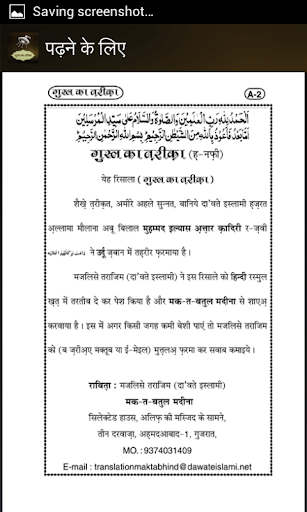 Saving screenshot...
पढ़ने के लिए
गुस्ल का त़रीक़ा
A-2
اَلْحَمْدُ لِلّٰهِ رَبِّ الْعٰلَمِيْنَ وَالصَّلٰوةُ وَالسَّلَامُ عَلٰى سَيِّدِ الْمُرْسَلِيْنَ
اَمَّا بَعْدُ فَاَعُوْذُ بِاللّٰهِ مِنَ الشَّيْطٰنِ الرَّجِيْمِ بِسْمِ اللّٰهِ الرَّحْمٰنِ الرَّحِيْمِ
गुस्ल का त़रीक़ा (ह-नफ़ी)
येह रिसाला (गुस्ल का त़रीक़ा)
शैख़े त़रीक़त, अमीरे अहले सुन्नत, बानिये दा'वते इस्लामी ह़ज़रत
अ़ल्लामा मौलाना अबू बिलाल मुह़म्मद इल्यास अ़त्त़ार क़ादिरी र-ज़वी
ने उर्दू ज़बान में तह़रीर फ़रमाया है।
मजलिसे तराजिम (दा'वते इस्लामी) ने इस रिसाले को हिन्दी रस्मुल
ख़त़ में तरतीब दे कर पेश किया है और मक-त-बतुल मदीना से शाएअ़
करवाया है। इस में अगर किसी जगह कमी बेशी पाएं तो मजलिसे तराजिम
को (ब ज़रीअ़ए मक्तूब या ई-मेइल) मुत़्त़लअ़ फ़रमा कर सवाब कमाइये।
राबित़ा : मजलिसे तराजिम (दा'वते इस्लामी)
मक-त-बतुल मदीना
सिलेक्टेड हाउस, अलिफ़ की मस्जिद के सामने,
तीन दरवाज़ा, अह़मदआबाद-1, गुजरात,
MO.: 9374031409
E-mail : translationmaktabhind@dawateislami.net